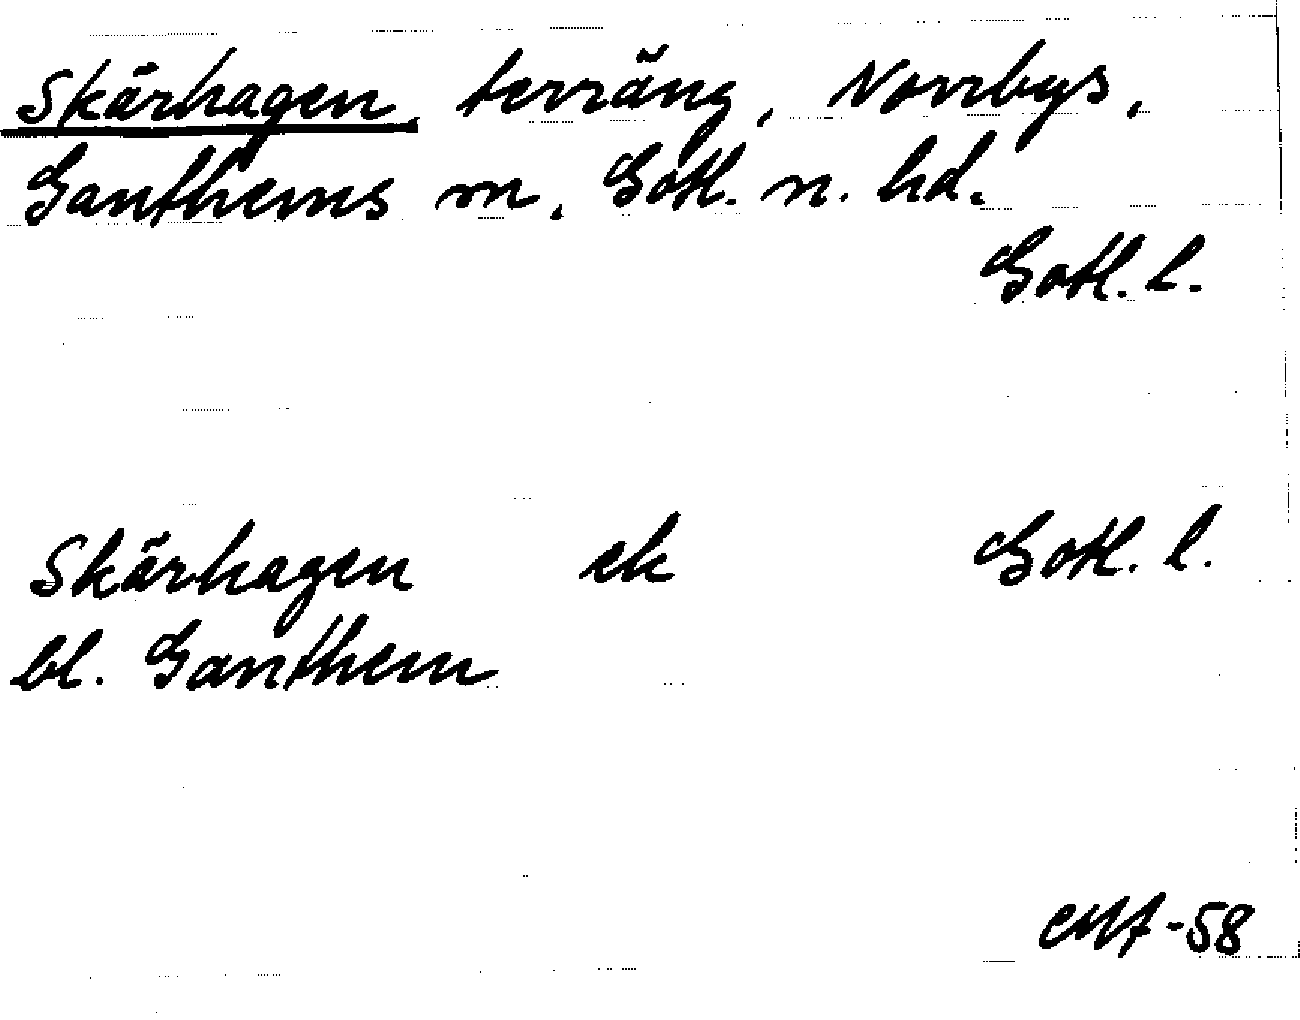 Skärhagen, terräng, Norrbys,
Ganthems sn, Gotl. n. hd.
Gotl. l.
Skärhagen ek Gotl. l.
bl. Ganthem
-58